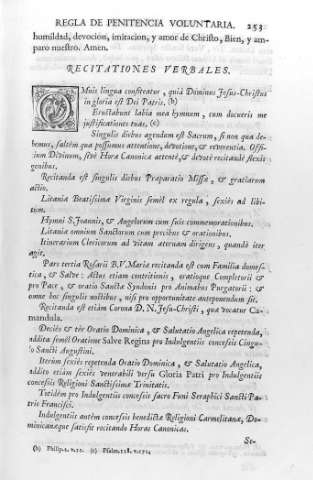 REGLA DE PENITENCIA VOLUNTARIA. 253
humildad, devocion, imitacion, y amor de Christo, Bien, y am-
paro nuestro. Amen.
RECITATIONES VERBALES.
OMnis lingua confiteatur, quià Dominus Jesus-Christus
in gloria est Dei Patris. (b)
Eructabunt labia mea hymnum, cum docueris me
justificationes tuas. (c)
Singulis diebus agendum est Sacrum, si non qua de-
bemus, saltèm qua possumus attentione, devotione, & reverentia. Offi-
cium Divinum, sivè Hora Canonica attentè, & devotè recitandi flexis
genibus.
Recitanda est singulis diebus Praparatio Missa, & gratiarum
actio.
Litania Beatissima Virginis semèl ex regula, sexiès ad libi-
tum.
Hymni S. Joannis, & Angelorum cum suis commemorationibus.
Litania omnium Sanctorum cum precibus & orationibus.
Itinerarium Clericorum ad vitam aternam dirigens, quando iter
agit.
Pars tertia Rosarii B.V. Maria recitanda est cum Familia domes-
tica, & Salve: Actus etiam contritionis, oratioque Completorii &
pro Pace, & oratio Sancta Synodonis pro Animabus Purgatorii: &
omne hoc singulis noctibus, nisi pro opportunitate anteponendum sit.
Recitanda est etiàm Corona D. N. Jesu-Christi, qua vocatur Ca-
mandula.
Deciès & ter Oratio Dominica, & Salutatio Angelica repetenda,
addita semèl Oratione Salve Regina pro Indulgentiis concessis Cingu-
lo Sancti Augustini.
Iterùm sexiès repetenda Oratio Dominica, & Salutatio Angelica,
addito etiàm sexiès venerabili versu Gloria Patri pro Indulgentiis
concessis Religioni Sanctissima Trinitatis.
Totidèm pro Indulgentiis concessis sacro Funi Seraphici Sancti Pa-
tris Francisci.
Indulgentiis autèm concessis benedicta Religioni Carmelitana, Do-
minicanaque satisfit recitando Horas Canonicas.
Se-
(b) Philip. 2. v. 11. (c) Psalm. 118. v. 171.